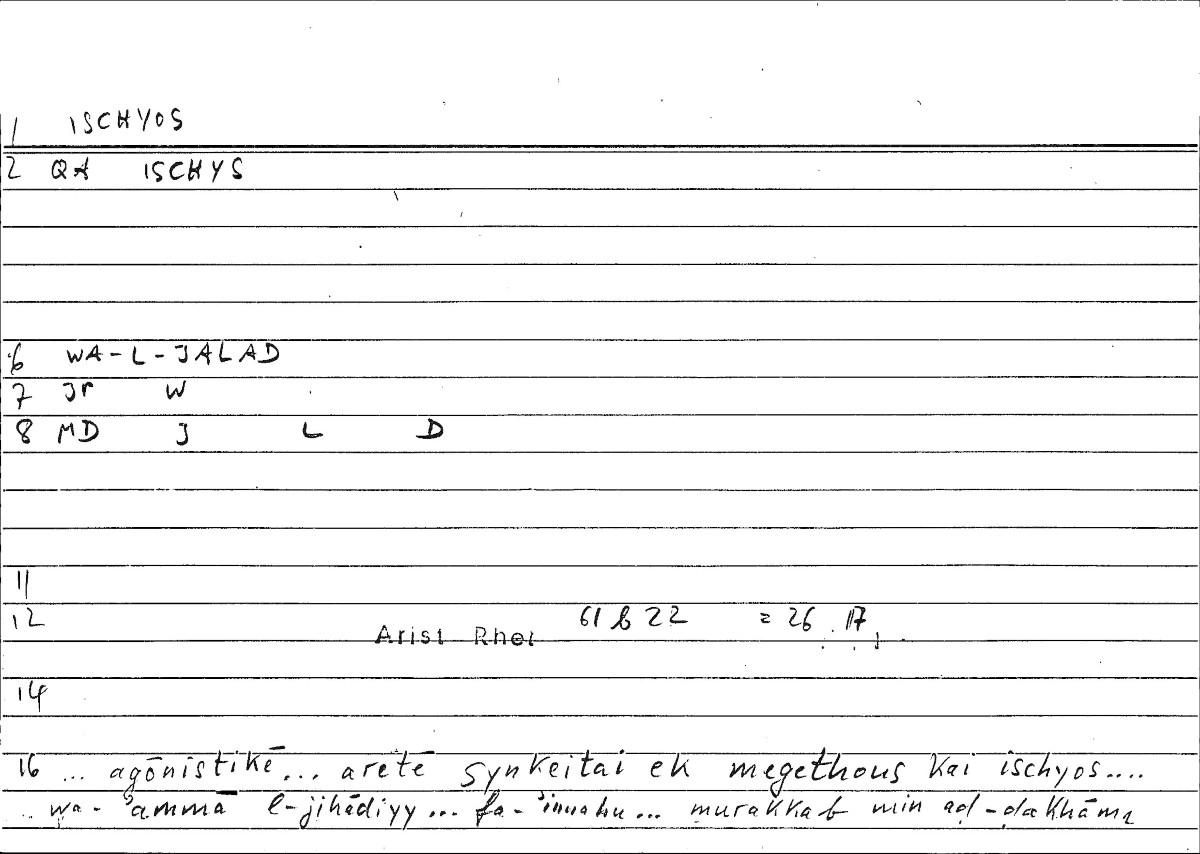 1 ISCHYOS
2 QA ISCHYS
6 WA-L-JALAD
7 Jr W
8 MD J L D
11
12 Arist Rhet 61 b 22 = 26 17,
14
16 ... agōnistikē... aretē synkeitai ek megethous kai ischyos....
.. wa-ʾammā l-jihādiyy... fa-ʾinnahu... murakkab min aḍ-ḍakhāma